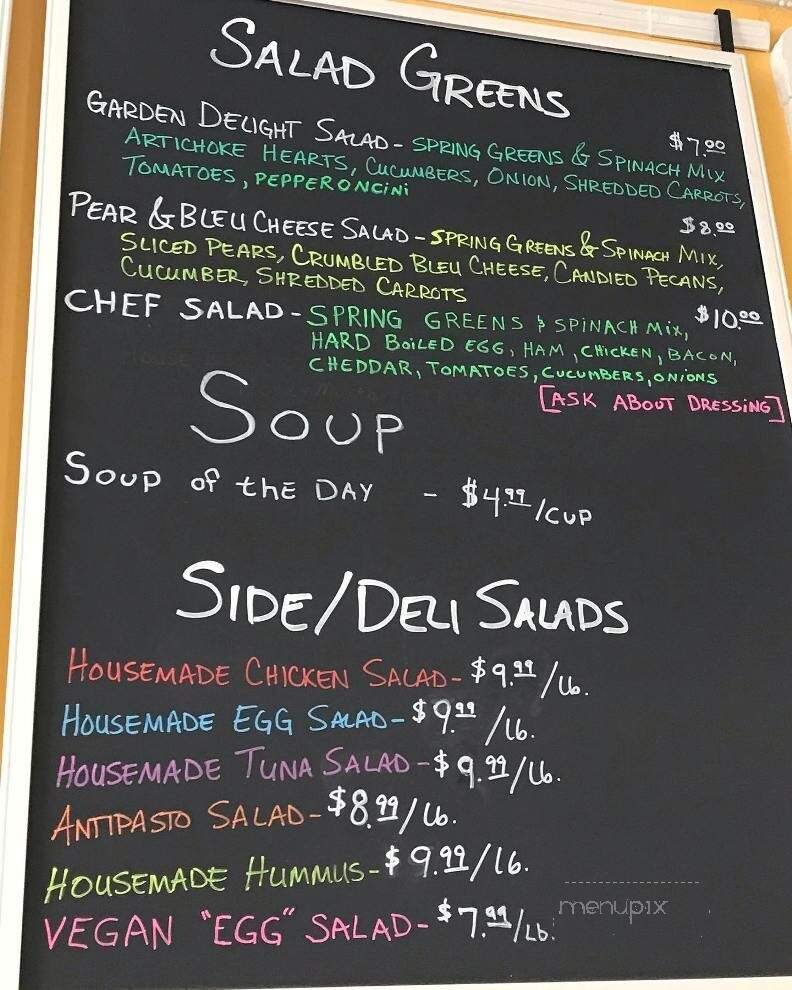 SALAD GREENS
GARDEN DELIGHT SALAD - SPRING GREENS & SPINACH MIX $7.00
ARTICHOKE HEARTS, CUCUMBERS, ONION, SHREDDED CARROTS,
TOMATOES, PEPPERONCINI
PEAR & BLEU CHEESE SALAD - SPRING GREENS & SPINACH MIX, $8.00
SLICED PEARS, CRUMBLED BLEU CHEESE, CANDIED PECANS,
CUCUMBER, SHREDDED CARROTS
CHEF SALAD - SPRING GREENS & SPINACH MIX, $10.00
HARD BOILED EGG, HAM, CHICKEN, BACON,
CHEDDAR, TOMATOES, CUCUMBERS, ONIONS
[ASK ABOUT DRESSING]
SOUP
SOUP of thE DAY - $4.99/CUP
SIDE/DELI SALADS
HOUSEMADE CHICKEN SALAD - $9.99/lb.
HOUSEMADE EGG SALAD - $9.99/lb.
HOUSEMADE TUNA SALAD - $9.99/lb.
ANTIPASTO SALAD - $8.99/lb.
HOUSEMADE HUMMUS - $9.99/lb.
VEGAN "EGG" SALAD - $7.99/Lb.
menupix